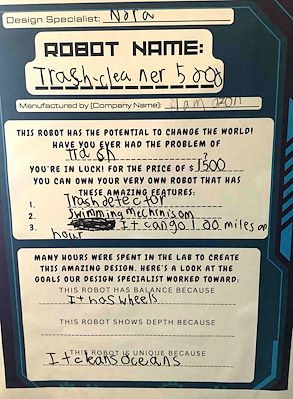 Design Specialist: Nora
ROBOT NAME:
Trash-cleaner 5000
Manufactured by (Company Name):
THIS ROBOT HAS THE POTENTIAL TO CHANGE THE WORLD!
HAVE YOU EVER HAD THE PROBLEM OF
Trash ?
YOU'RE IN LUCK! FOR THE PRICE OF $1500
YOU CAN OWN YOUR VERY OWN ROBOT THAT HAS
THESE AMAZING FEATURES:
1. Trash detector
2. Swimming mechinisom
3. It can go 100 miles an
hour
MANY HOURS WERE SPENT IN THE LAB TO CREATE
THIS AMAZING DESIGN. HERE'S A LOOK AT THE
GOALS OUR DESIGN SPECIALIST WORKED TOWARD:
THIS ROBOT HAS BALANCE BECAUSE
It has wheels
THIS ROBOT SHOWS DEPTH BECAUSE
THIS ROBOT IS UNIQUE BECAUSE
It cleans oceans